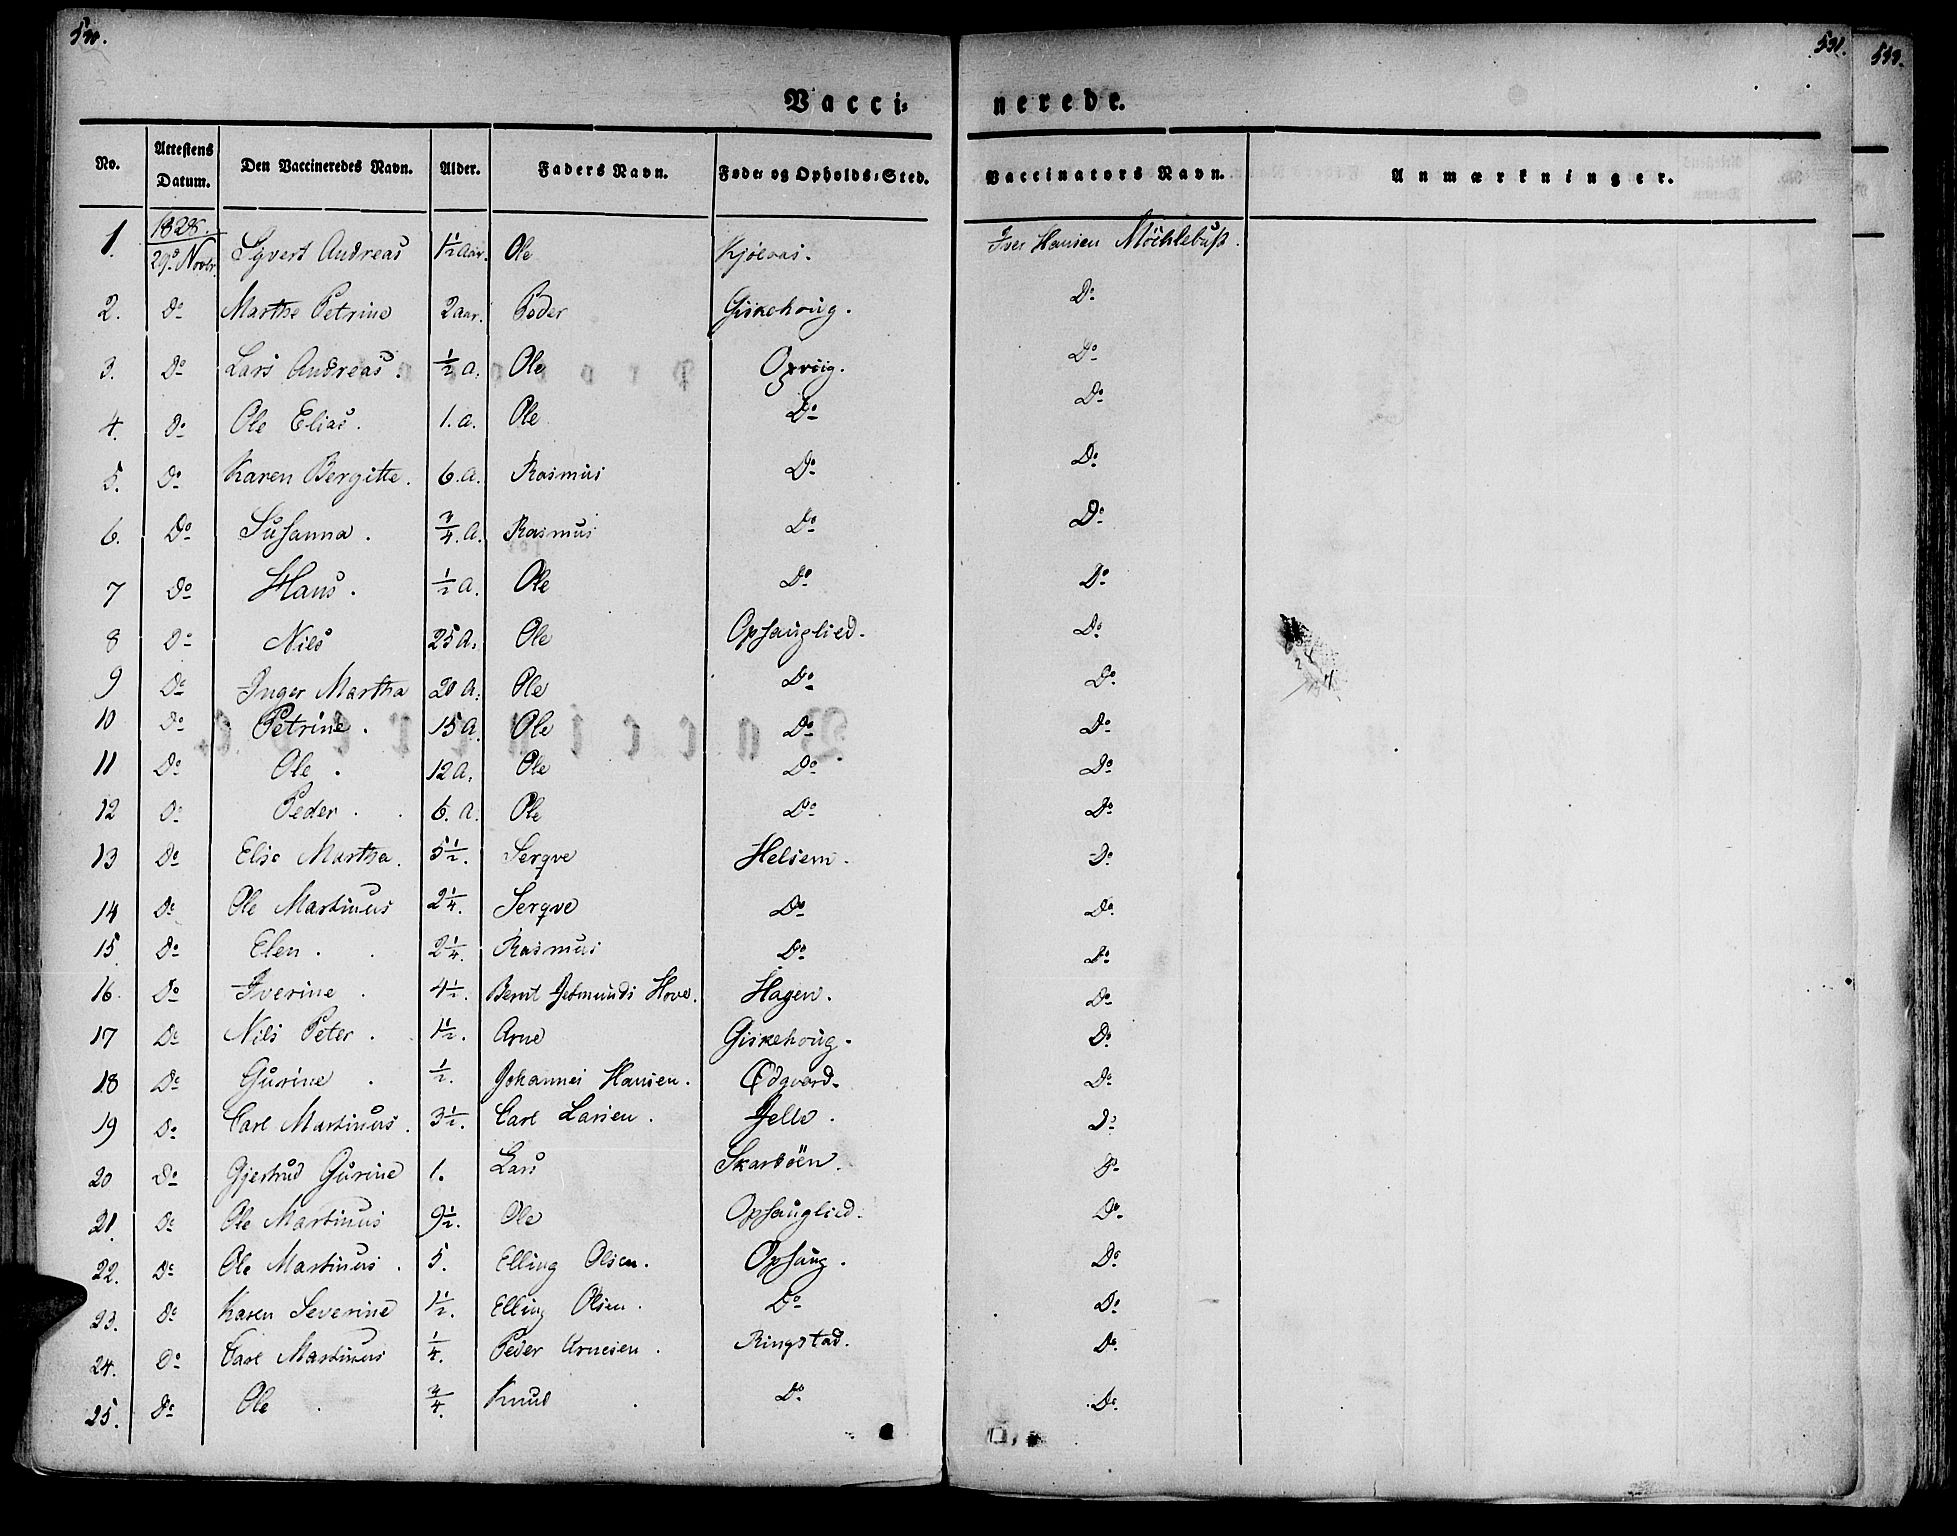 531.
533.
Vacci=nerede.
No. Attestens Datum. Den Vaccineredes Navn. Alder. Faders Navn. Føde= og Opholds=Sted. Vaccinators Navn. Anmærkninger.
1828.
1. 29de Novbr. Syvert Andreas 1½ Aar. Ole Iver Hansen
2. Do Marthe Petrine 2 aar. Peder Giskehoug. Do
3. Do Lars Andreas. ½ a. Ole Do
4. Do Ole Elias. 1. a. Ole Do Do
5. Do Karen Bergitte. 6. a. Rasmus Do Do
6. Do Susanna. ¾. a. Rasmus Do Do
7 Do Hans. ½ a. Ole Do Do
8 Do Nils 25 a. Ole Ophauglied. Do
9 Do Inger Martha 20 a. Ole Do Do
10 Do Petrine. 15 a. Ole Do Do
11 Do Ole. 12 a. Ole Do Do
12 Do Peder. 6. a. Ole Do Do
13 Do Elise Martha. 5½. Serqve Helsem. Do
14 Do Ole Martinus 2¼. Serqve Do Do
15. Do Elen. 2¼. Rasmus Do Do
16. Do Iverine. 4½. Bernt Hove. Hagen. Do
17 Do Nils Peter. 1½. Arne Giskehoug. Do
18 Do Gurine. ½. Johannes Hansen. Do
19 Do Carl Martinus. 3½. Carl Larsen. Do
20 Do Gjertrud Gurine 1. Lars Skarböen. Do
21. Do Ole Martinus 9½. Ole Ophauglied. Do
22. Do Ole Martinus. 5. Elling Olsen. Ophaug. Do
23. Do Karen Severine 1½. Elling Olsen. Do Do
24. Do Carl Martinus ¼. Peder Arnesen. Ringstad. Do
25. Do Ole. ¾. Knud. Do Do